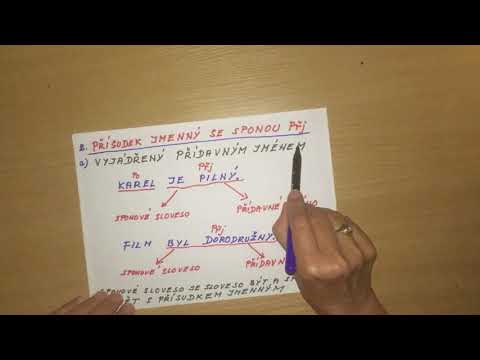 2. PŘÍSUDEK JMENNÝ SE SPONOU Přj
a) VYJÁDŘENÝ PŘÍDAVNÝM JMÉNEM
Po Přj
KAREL JE PILNÝ.
SPONOVÉ SLOVESO PŘÍDAVNÉ
Přj
FILM BYL DORODRUŽNÝ.
SPONOVÉ SLOVESO
SPONOVÉ SLOVESO JE SLOVESO BÝT A
S PŘÍSUDKEM JMENNÝM